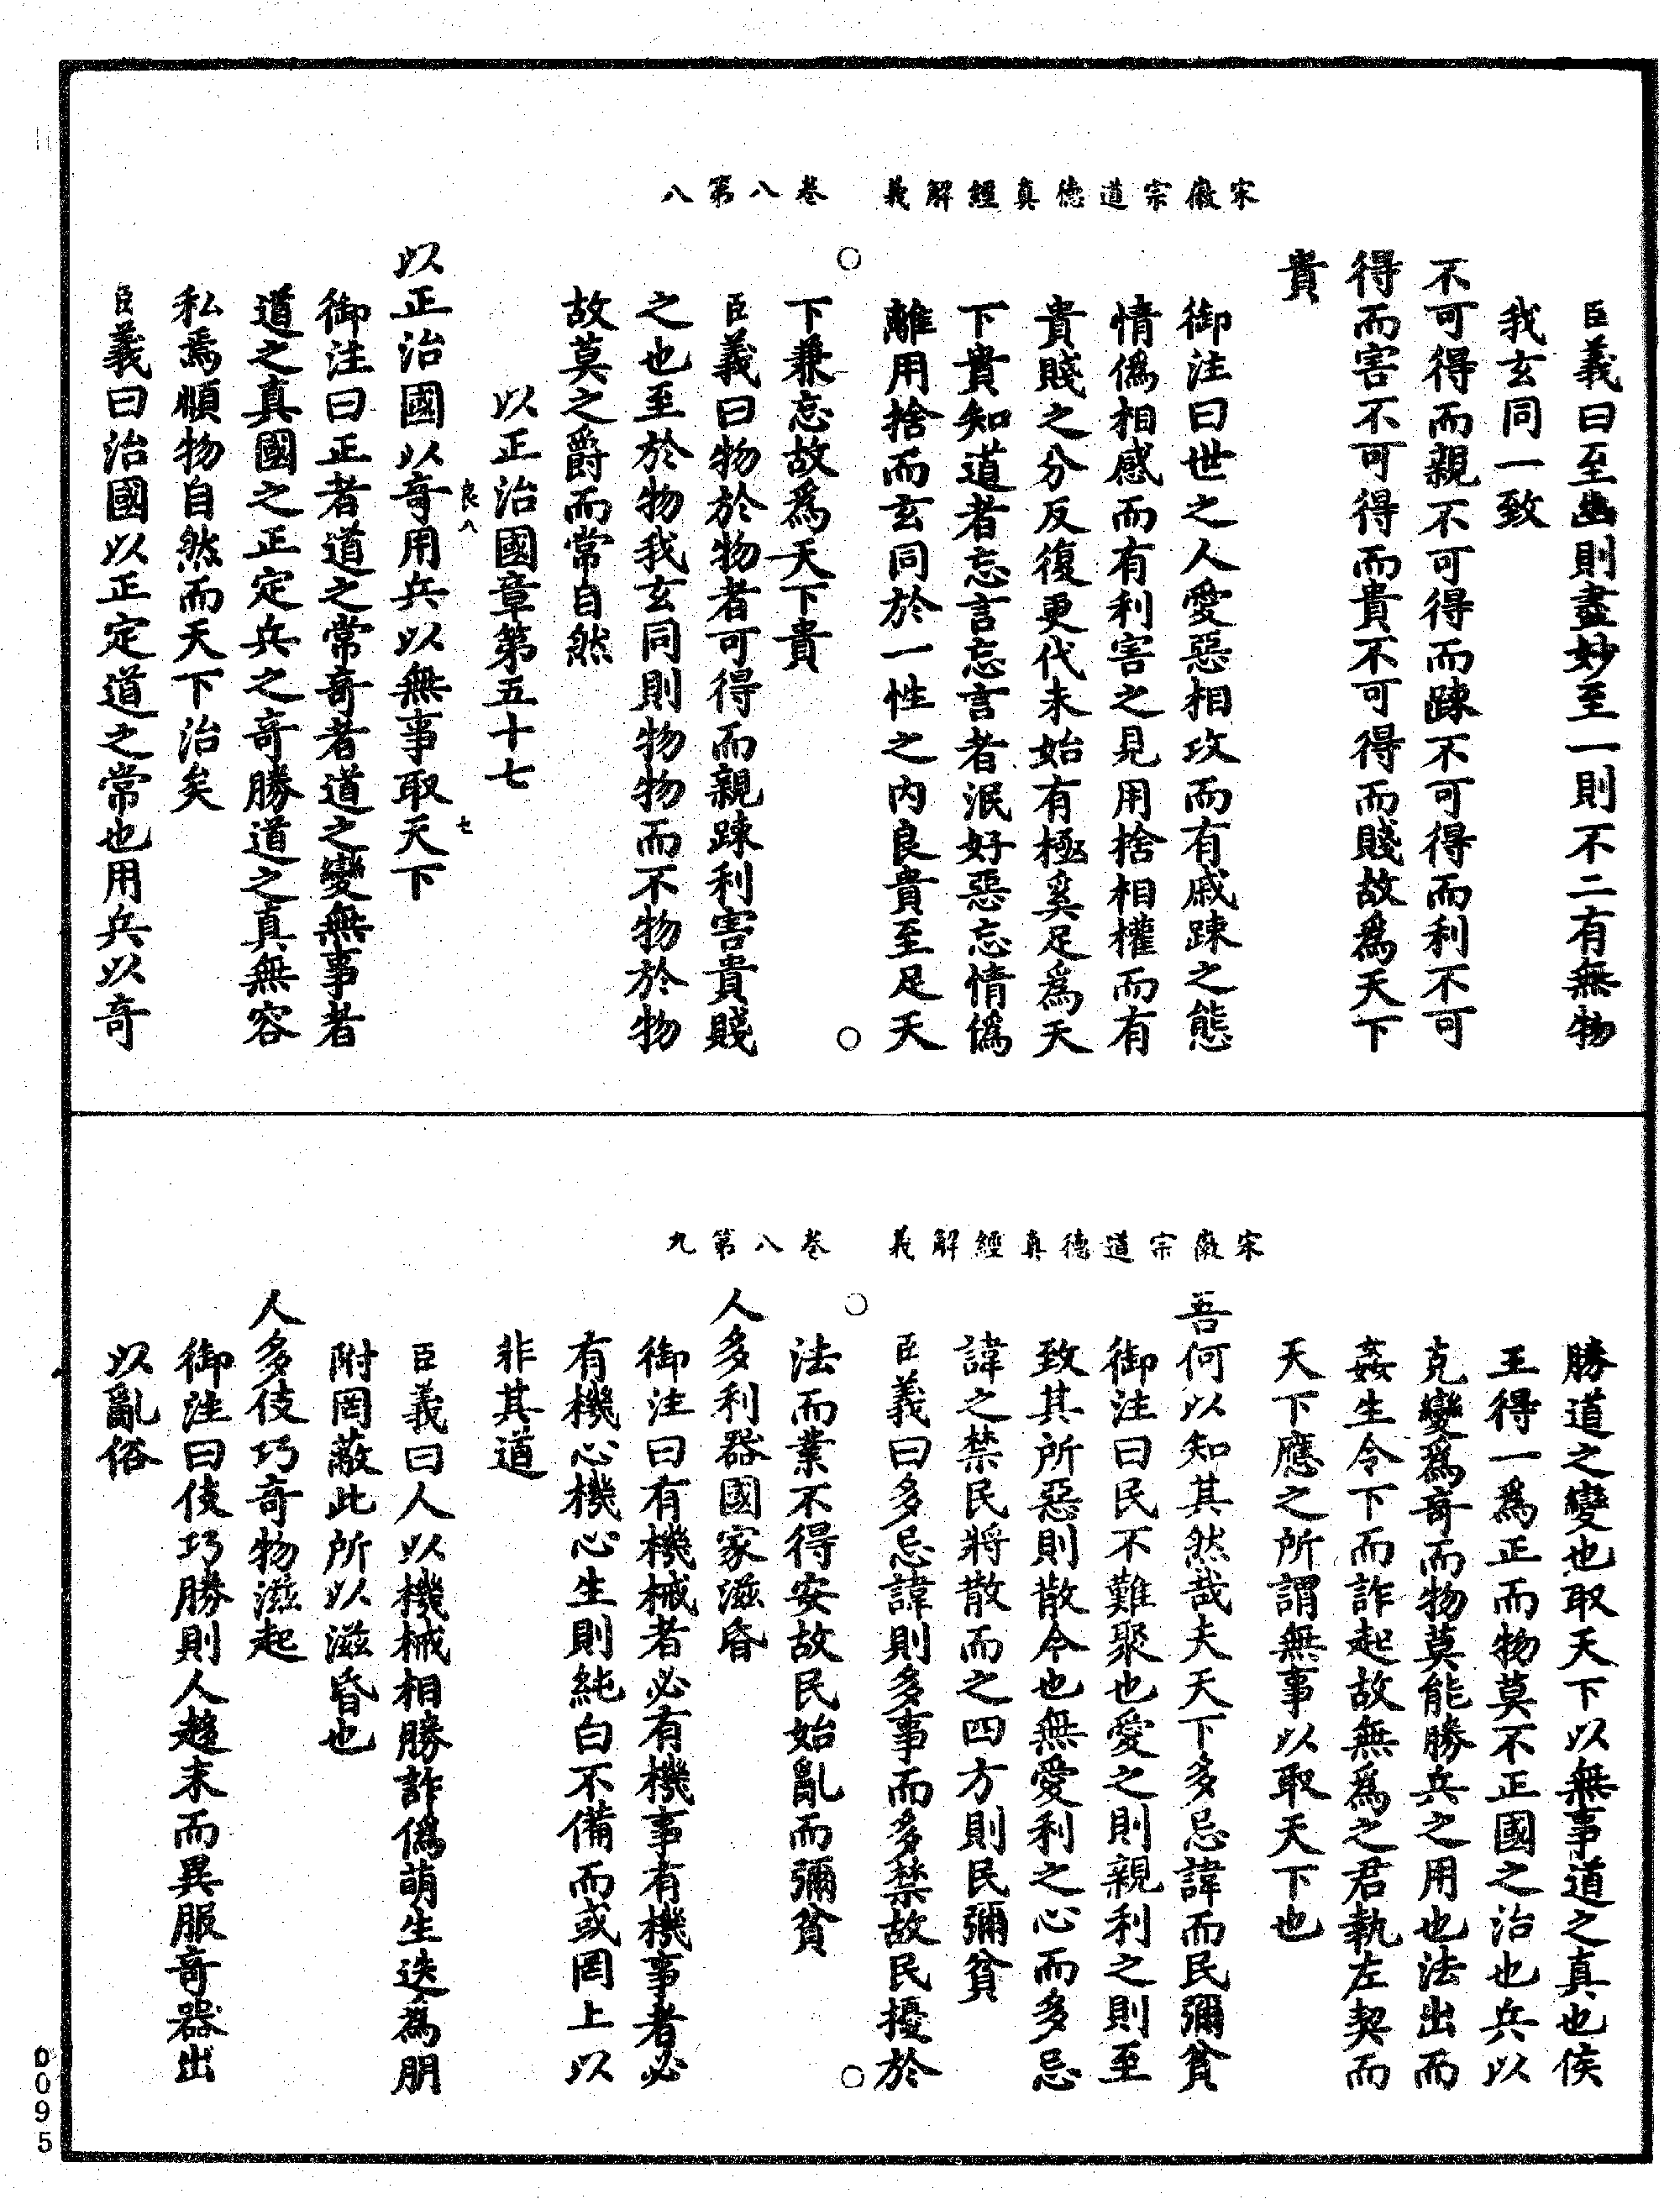 宋徽宗道德真經解義　卷八第八
臣義曰至幽則盡妙至一則不二有無物
我玄同一致
不可得而親不可得而踈不可得而利不可
得而害不可得而貴不可得而賤故爲天下
貴
御注曰世之人愛惡相攻而有戚踈之態
情僞相感而有利害之見用捨相權而有
貴賤之分反復更代未始有極奚足爲天
下貴知道者忘言忘言者泯好惡忘情僞
離用捨而玄同於一性之內良貴至足天
下兼忘故爲天下貴
臣義曰物於物者可得而親踈利害貴賤
之也至於物我玄同則物物而不物於物
故莫之爵而常自然
以正治國章第五十七
良八　七
以正治國以竒用兵以無事取天下
御注曰正者道之常竒者道之變無事者
道之真國之正定兵之竒勝道之真無容
私焉順物自然而天下治矣
臣義曰治國以正定道之常也用兵以竒
宋徽宗道德真經解義　卷八第九
勝道之變也取天下以無事道之真也侯
王得一爲正而物莫不正國之治也兵以
克變爲竒而物莫能勝兵之用也法出而
姦生令下而詐起故無爲之君執左契而
天下應之所謂無事以取天下也
吾何以知其然哉夫天下多忌諱而民彌貧
御注曰民不難聚也愛之則親利之則至
致其所惡則散今也無愛利之心而多忌
諱之禁民將散而之四方則民彌貧
臣義曰多忌諱則多事而多禁故民擾於
法而業不得安故民始亂而彌貧
人多利器國家滋昏
御注曰有機械者必有機事有機事者必
有機心機心生則純白不備而或罔上以
非其道
臣義曰人以機械相勝詐僞萌生迭為朋
附罔蔽此所以滋昏也
人多伎巧竒物滋起
御注曰伎巧勝則人趨末而異服竒器出
以亂俗
0095